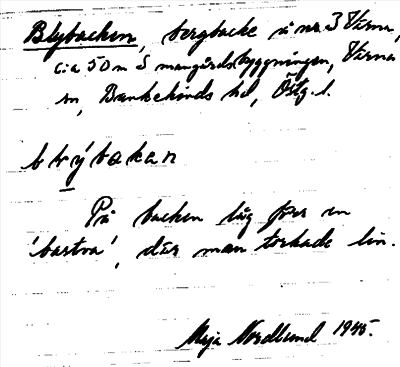 Brybacken, bergbacke å nr 3 Värna,
c:a 50 m S mangårdsbyggningen, Värna
sn, Bankekinds hd, Östg. l.
brýbakan
På backen låg förr en
'bastva', där man torkade lin.
Maja Nordlund 1945.